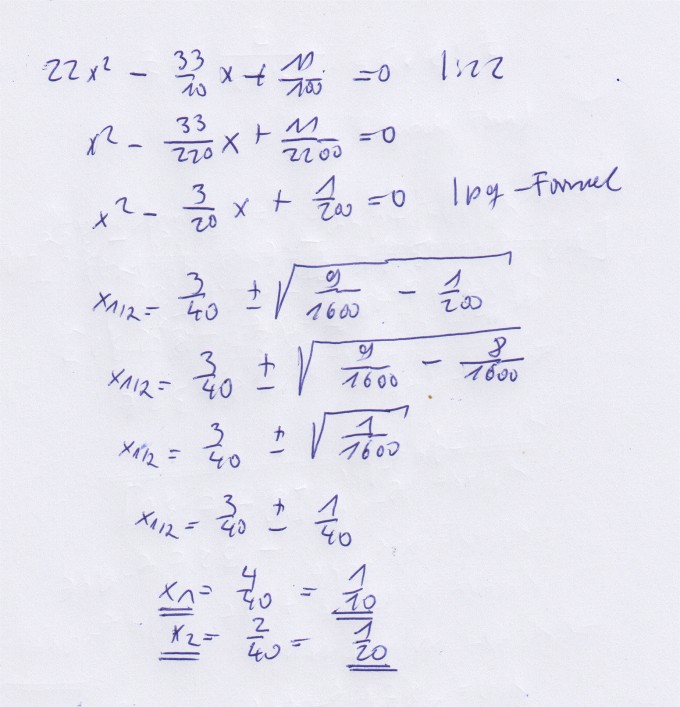 22x² - 33/10 x + 11/100 = 0 |:22
x² - 33/220 x + 11/2200 = 0
x² - 3/20 x + 1/200 = 0 |pq-Formel
x1/2 = 3/40 ± √(9/1600 - 1/200)
x1/2 = 3/40 ± √(9/1600 - 8/1600)
x1/2 = 3/40 ± √(1/1600)
x1/2 = 3/40 ± 1/40
x1 = 4/40 = 1/10
x2 = 2/40 = 1/20